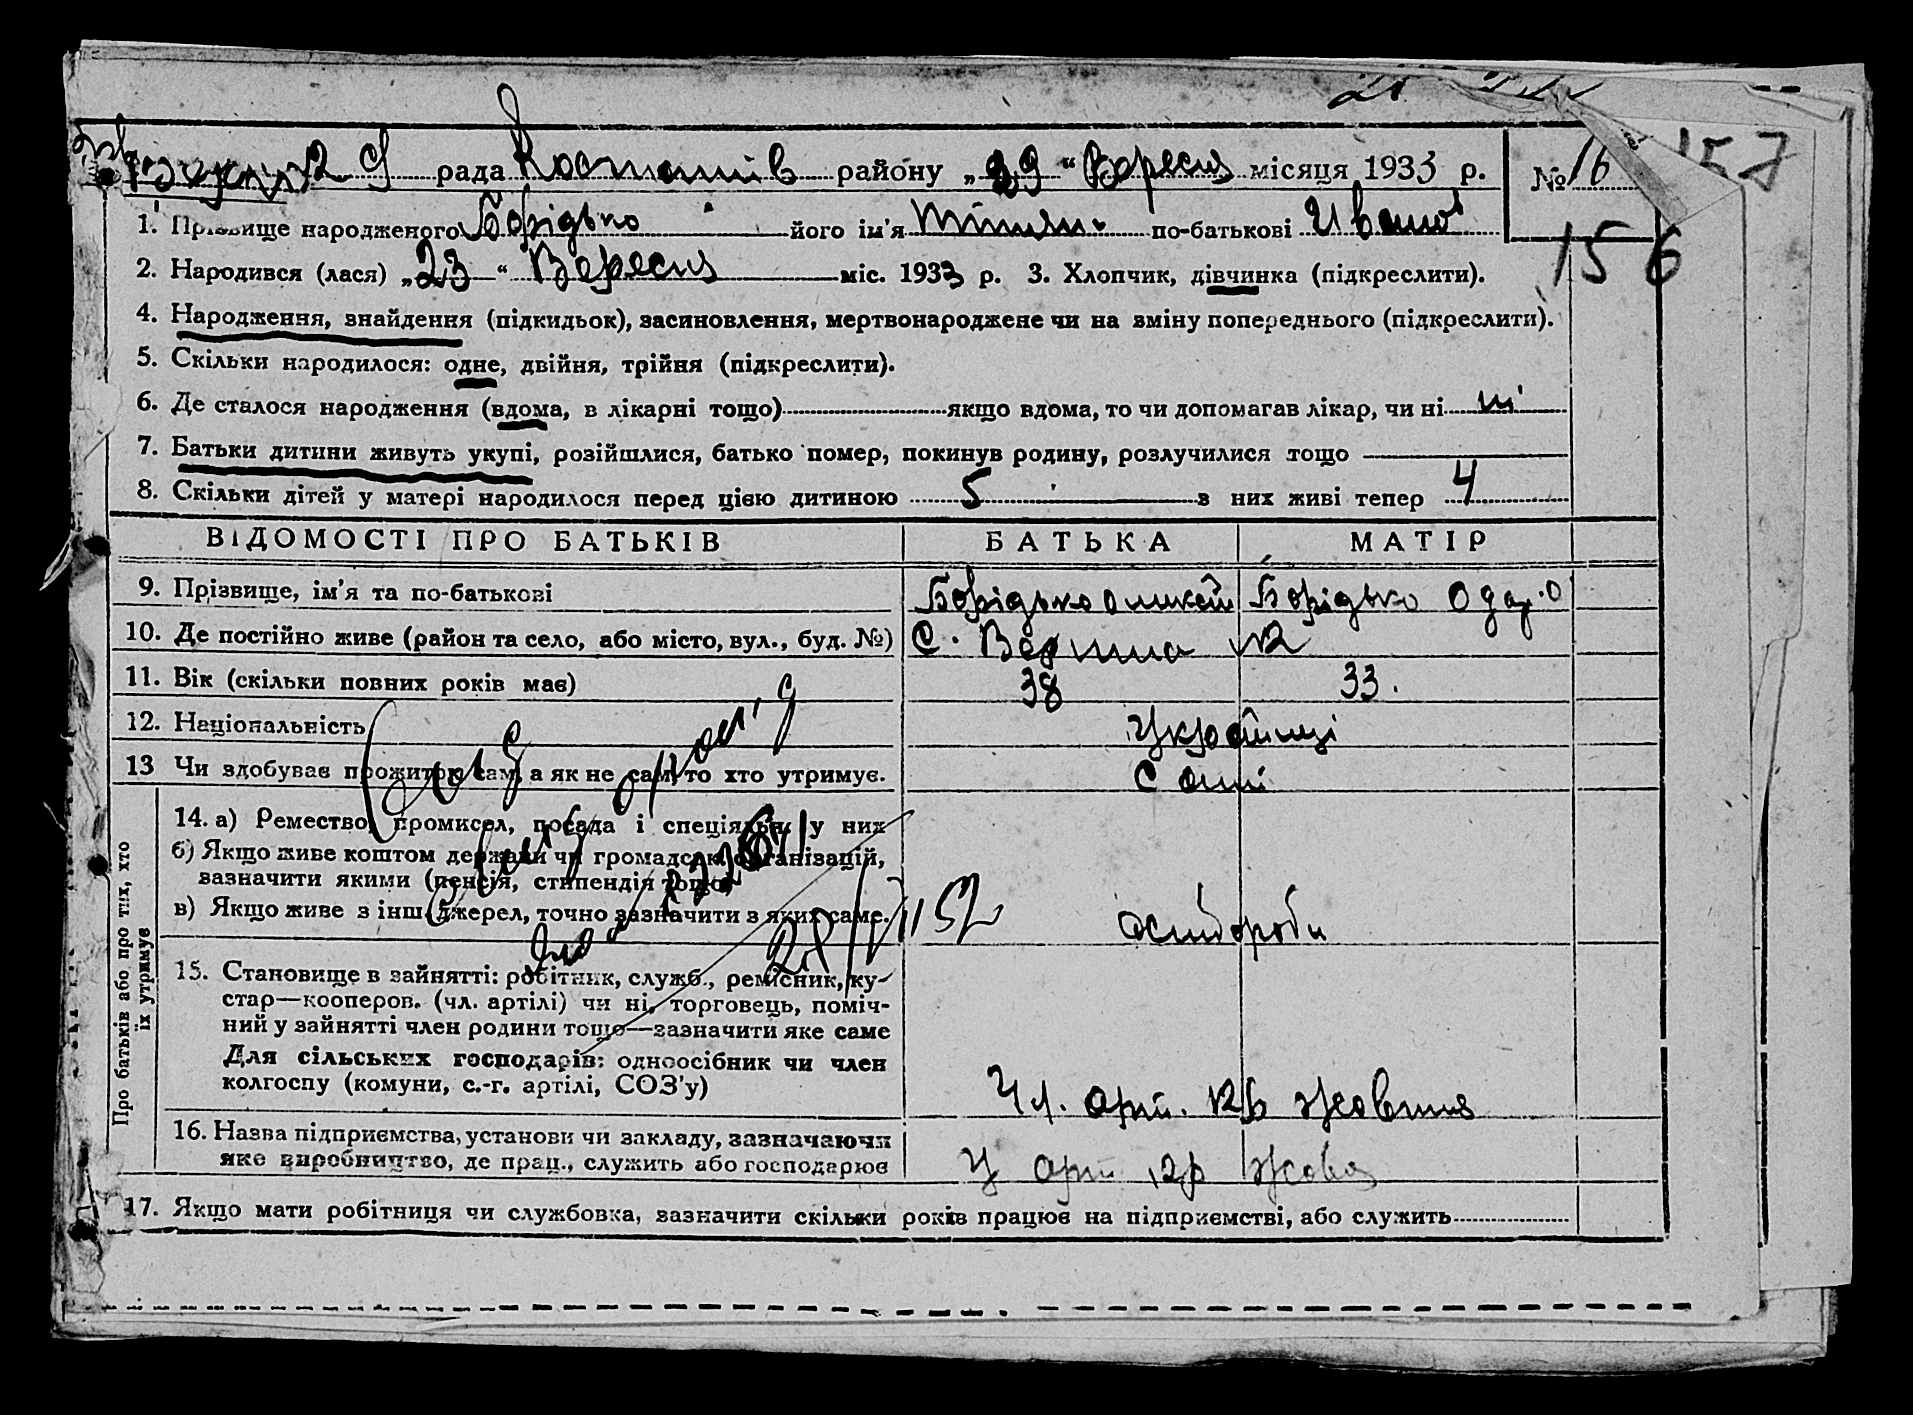 рада районy „29“ Вересня місяця 1933 р. № 16
157
1. Прізвище народженого Борідько його ім'я по-батькові
156
2. Народився (лася) „23“ Вересня міс. 1933 р. 3. Хлопчик, дівчинка (підкреслити).
4. Народження, знайдення (підкидьок), засиновлення, мертвонароджене чи на зміну попереднього (підкреслити).
5. Скільки народилося: одне, двійня, трійня (підкреслити).
6. Де сталося народження (вдома, в лікарні тощо) якщо вдома, то чи допомагав лікар, чи ні ні
7. Батьки дитини живуть укупі, розійшлися, батько помер, покинув родину, розлучилися тощо
8. Скільки дітей у матері народилося перед цією дитиною 5 з них живі тепер 4
ВІДОМОСТІ ПРО БАТЬКІВ БАТЬКА МАТІР
9. Прізвище, ім'я та по-батькові Борідько Борідько
10. Де постійно живе (район та село, або місто, вул., буд. №) С.
11. Вік (скільки повних років має) 38 33.
12. Національність Українці
13 Чи здобуває прожиток сам, а як не сам, то хто утримує. Самі
Про батьків або про тих, хто їх утримує
14. а) Ремество, промисел, посада і спеціяльн. у них
б) Якщо живе коштом держави чи громадськ. організацій,
зазначити якими (пенсія, стипендія тощо)
в) Якщо живе з інш. джерел, точно зазначити з яких саме.
15. Становище в зайнятті: робітник, служб., ремісник, ку-
стар—кооперов. (чл. артілі) чи ні, торговець, поміч-
ний у зайнятті член родини тощо—зазначити яке саме
Для сільських господарів: одноосібник чи член
колгоспу (комуни, с.-г. артілі, СОЗ'у) Чл. арт.
16. Назва підприємства, установи чи закладу, зазначаючи
яке виробництво, де прац., служить або господарює У арт
17. Якщо мати робітниця чи службовка, зазначити скільки років працює на підприємстві, або служить